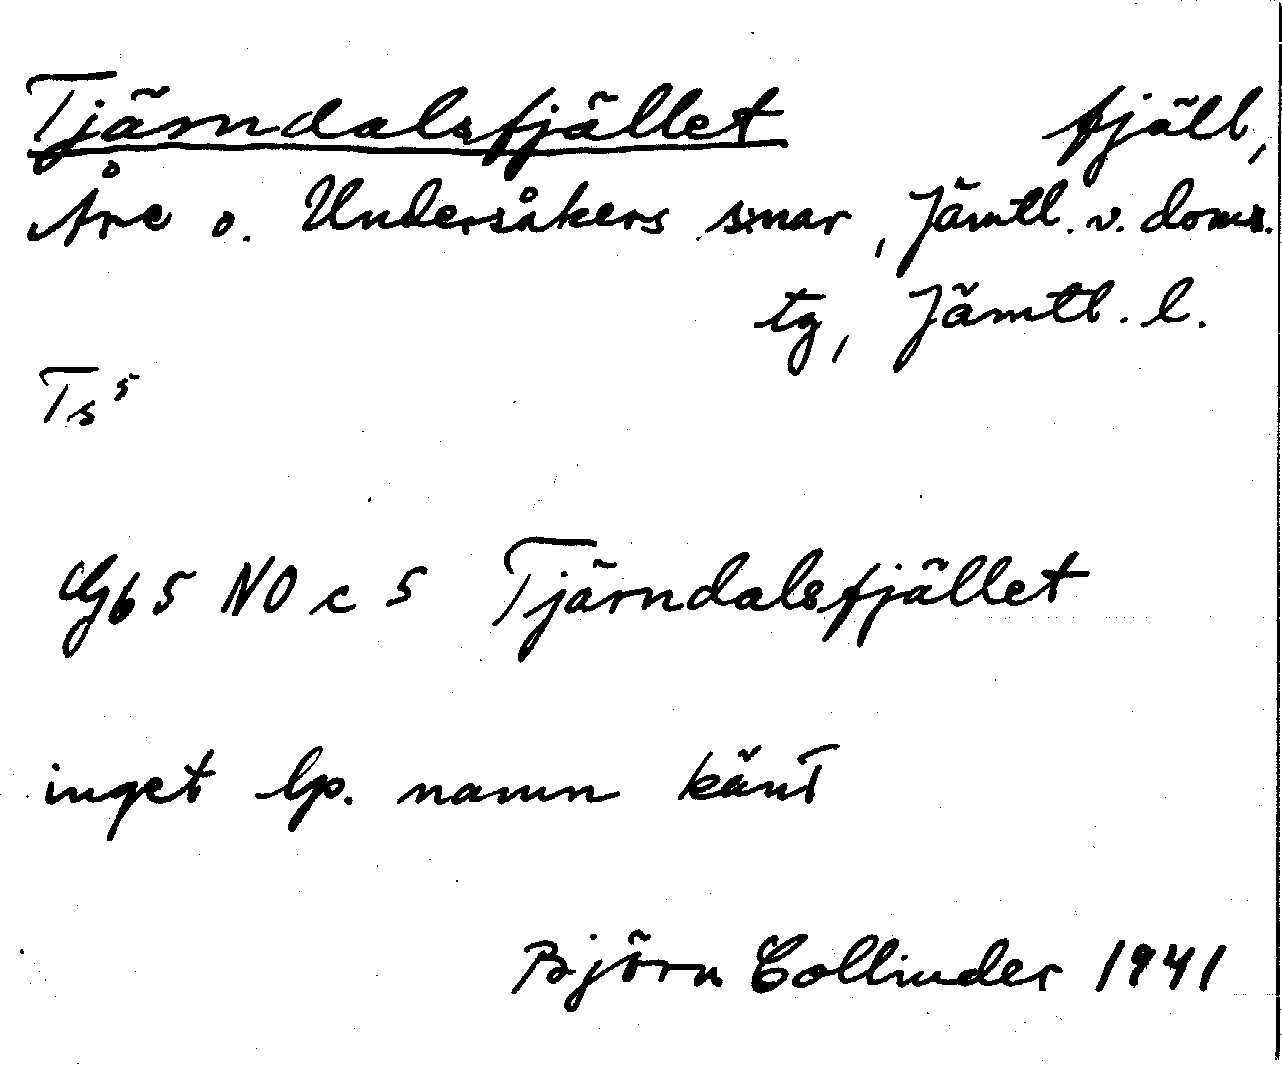 Tjärndalsfjället fjäll,
Åre o. Undersåkers snar, Jämtl. v. doms.
tg, Jämtl. l.
Ts 5
Gb 5 NO c 5 Tjärndalsfjället
inget lp. namn känt
Björn Collinder 1941